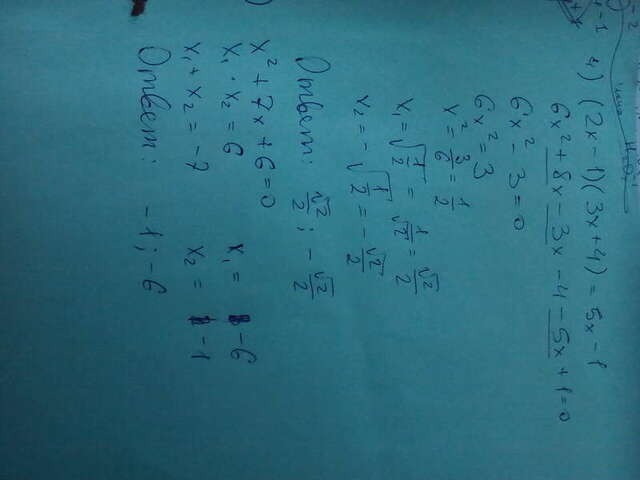 4) (2x-1)(3x+4)=5x-1
6x²+8x-3x-4-5x+1=0
6x²-3=0
6x²=3
x²=3/6=1/2
x₁=√(1/2)=1/√2=√2/2
x₂=-√(1/2)=-√2/2
Ответ: √2/2; -√2/2
x²+7x+6=0
x₁·x₂=6 x₁=-6
x₁+x₂=-7 x₂=-1
Ответ: -1; -6